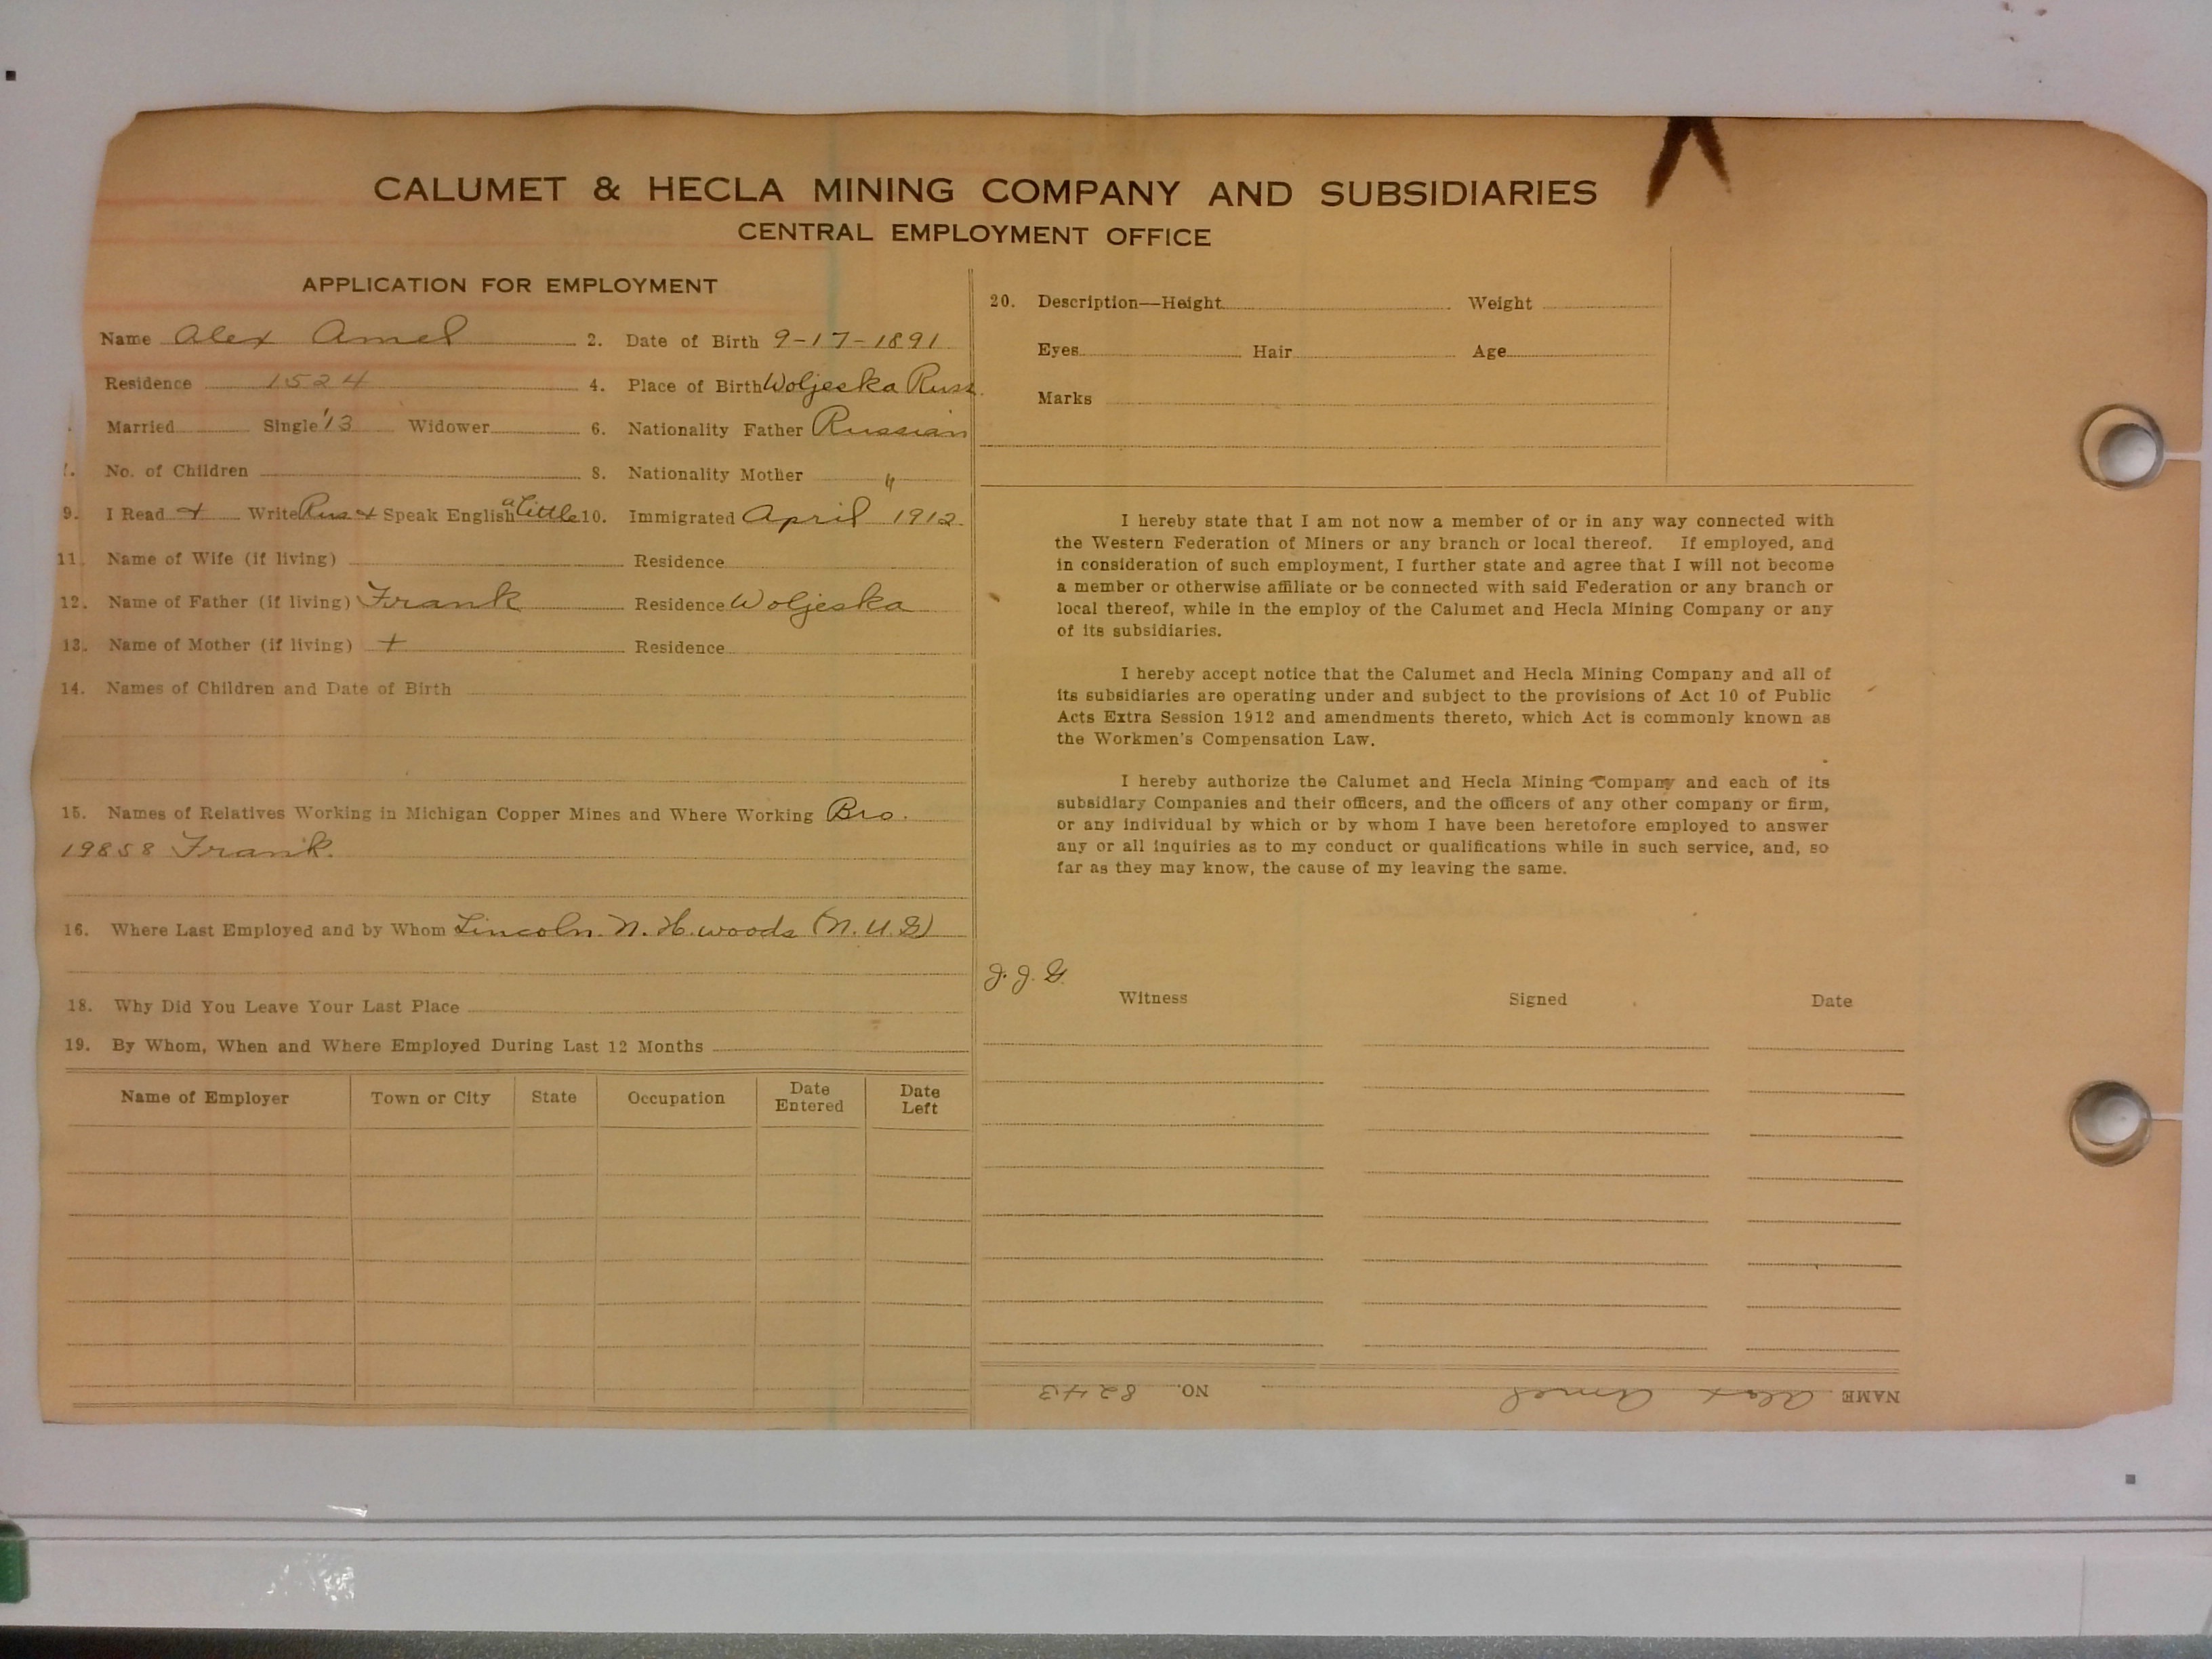 CALUMET & HECLA MINING COMPANY AND SUBSIDIARIES
CENTRAL EMPLOYMENT OFFICE
APPLICATION FOR EMPLOYMENT
Name Alex Amel 2. Date of Birth 9-17-1891
Residence 1524 4. Place of Birth Woljeska Russ.
Married Single '13 Widower 6. Nationality Father Russian
7. No. of Children 8. Nationality Mother "
9. I Read + Write Rus + Speak English a little 10. Immigrated April 1912.
11. Name of Wife (if living) Residence
12. Name of Father (if living) Frank Residence Woljeska
13. Name of Mother (if living) + Residence
14. Names of Children and Date of Birth
15. Names of Relatives Working in Michigan Copper Mines and Where Working Bro.
19858 Frank.
16. Where Last Employed and by Whom Lincoln. N. H. woods (N. U. G)
18. Why Did You Leave Your Last Place
19. By Whom, When and Where Employed During Last 12 Months
Name of Employer Town or City State Occupation Date Entered Date Left
20. Description—Height Weight
Eyes Hair Age
Marks
I hereby state that I am not now a member of or in any way connected with
the Western Federation of Miners or any branch or local thereof. If employed, and
in consideration of such employment, I further state and agree that I will not become
a member or otherwise affiliate or be connected with said Federation or any branch or
local thereof, while in the employ of the Calumet and Hecla Mining Company or any
of its subsidiaries.
I hereby accept notice that the Calumet and Hecla Mining Company and all of
its subsidiaries are operating under and subject to the provisions of Act 10 of Public
Acts Extra Session 1912 and amendments thereto, which Act is commonly known as
the Workmen's Compensation Law.
I hereby authorize the Calumet and Hecla Mining Company and each of its
subsidiary Companies and their officers, and the officers of any other company or firm,
or any individual by which or by whom I have been heretofore employed to answer
any or all inquiries as to my conduct or qualifications while in such service, and, so
far as they may know, the cause of my leaving the same.
J. J. G.
Witness Signed Date
NAME Alex Amel NO. 8243